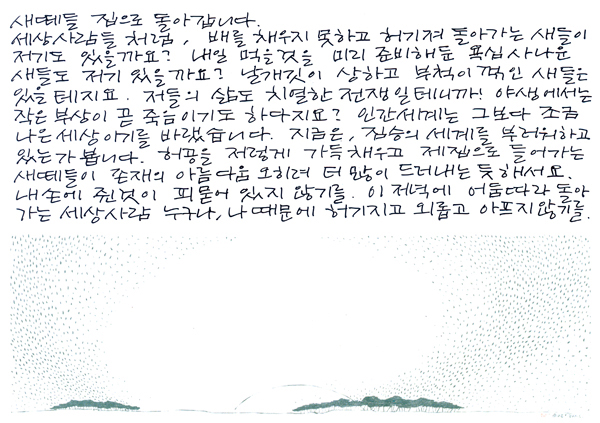 새떼들 집으로 돌아갑니다.
세상사람들 처럼, 배를 채우지 못하고 허기져 돌아가는 새들이
저기도 있을까요? 내일 먹을것을 미리 준비해둔 욕심 사나운
새들도 저기 있을까요? 날개깃이 상하고 부척이 꺽인 새들은
있을테지요. 저들의 삶도 치열한 전쟁일테니까! 야생에서는
작은 부상이 곧 죽음이기도 하다지요? 인간세계는 그보다 조금
나은 세상이기를 바랬습니다. 지금은, 짐승의 세계를 부러워하고
있는가 봅니다. 허공을 저렇게 가득 채우고 제집으로 들어가는
새떼들이 존재의 아름다움 오히려 더 많이 드러내는 듯 해서요.
내 손에 쥔것이 피묻어 있지 않기를. 이 저녁에 어둠따라 돌아
가는 세상사람 누구나, 나 때문에 허기지고 외롭고 아프지 않기를.